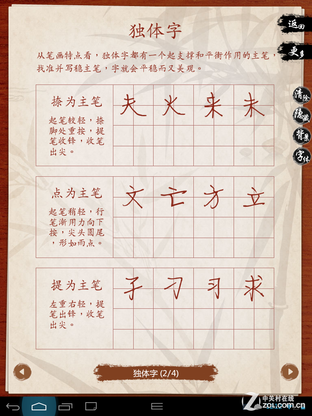 独体字
从笔画特点看，独体字都有一个起支撑和平衡作用的主笔，
找准并写稳主笔，字就会平稳而又美观。
捺为主笔
起笔较轻，捺
脚处重按，提
笔收锋，收笔
出尖。
夫 火 来 未
点为主笔
起笔稍轻，行
笔渐用力向下
按，尖头圆尾
，形如雨点。
文 亡 方 立
提为主笔
左重右轻，提
笔出锋，收笔
出尖。
孑 刁 习 求
独体字 (2/4)
返回
更多
清除
隐藏
背景
字体
中关村在线
ZOL.COM.CN